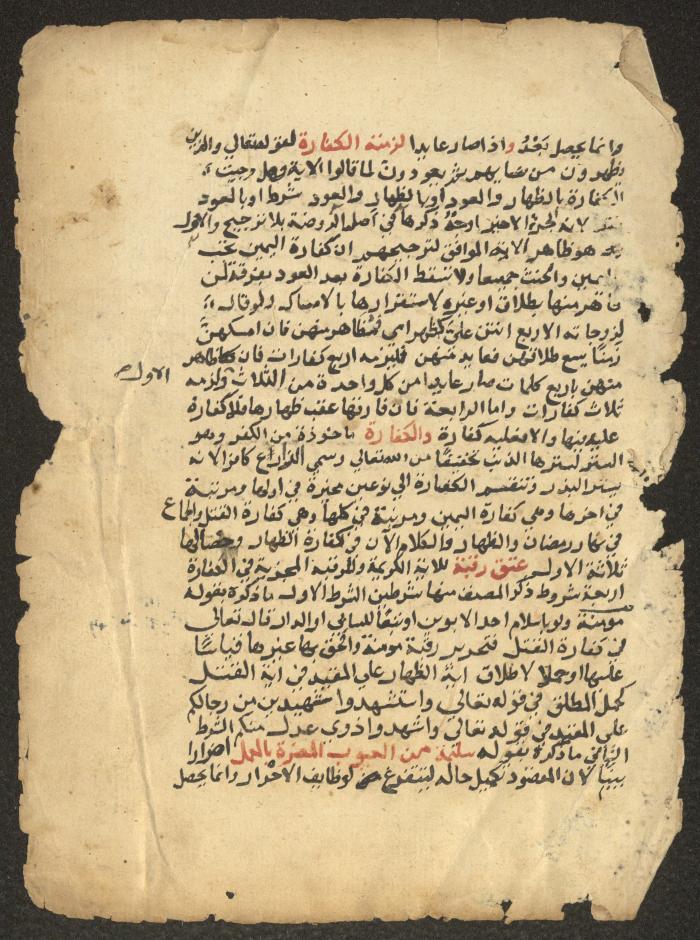 وانما يحصل بَعْدُ واذا صار عايدا لزمته الكفارة لقوله تعالى والذين
يظهرون من نسايهم ثم يعودون لما قالوا الاية وهل وجبت
الكفارة بالظهار والعود او بالظهار والعود شرط او بالعود
لانه الجزء الاخير اوجهٌ ذكرها في اصل الروضة بلا ترجيح والاول
هو ظاهر الاية الموافق لترجيحهم ان كفارة اليمين تجب
باليمين والحنث جميعا ولا تسقط الكفارة بعد العود بفرقة لمن
ظاهر منها بطلاق او غيره لاستقرارها بالامساك ولو قال
لزوجاته الاربع انتن عليّ كظهر امي فمُظاهر منهن فان امسكهنّ
زمنًا يسع طلاقهن فعايد منهن فيلزمه اربع كفارات فان ظاهر
منهن باربع كلمات صار عايدا من كل واحدة من الثلاث ولزمه
الاول
ثلاث كفارات واما الرابعة فان فارقها عقب ظهارها فلا كفارة
عليه فيها والا فعليه كفارة والكفارة ماخوذة من الكفر وهو
الستر لسترها الذنب تخفيفًا من الله تعالى وسمي الزراع كافرا لانه
يستر البذر وتنقسم الكفارة الى نوعين مخيرة في اولها ومرتبة
في اخرها وهي كفارة اليمين ومرتبة في كلها وهي كفارة القتل والجماع
في نهار رمضان والظهار والكلام الآن في كفارة الظهار وخصالها
ثلاثة الاول عتق رقبة للاية الكريمة وللرقبة المجزية في الكفارة
اربعة شروط ذكر المصنف منها شرطين الشرط الاول ما ذكره بقوله
مؤمنة ولو باسلام احد الابوين او تبعًا للسابي او الدار قال تعالى
في كفارة القتل فتحرير رقبة مؤمنة والحق بها غيرها قياسًا
عليها او حملا لاطلاق اية الظهار على المقيد في اية القتل
كحمل المطلق في قوله تعالى واستشهدوا شهيدين من رجالكم
على المقيد في قوله تعالى واشهدوا ذوى عدل منكم الشرط
الثاني ما ذكره بقوله سليمة من العيوب المضرة بالعمل اضرارا
بينًا لان المقصود تكميل حاله ليتفرغ لوظايف الاحرار وانما يحصل